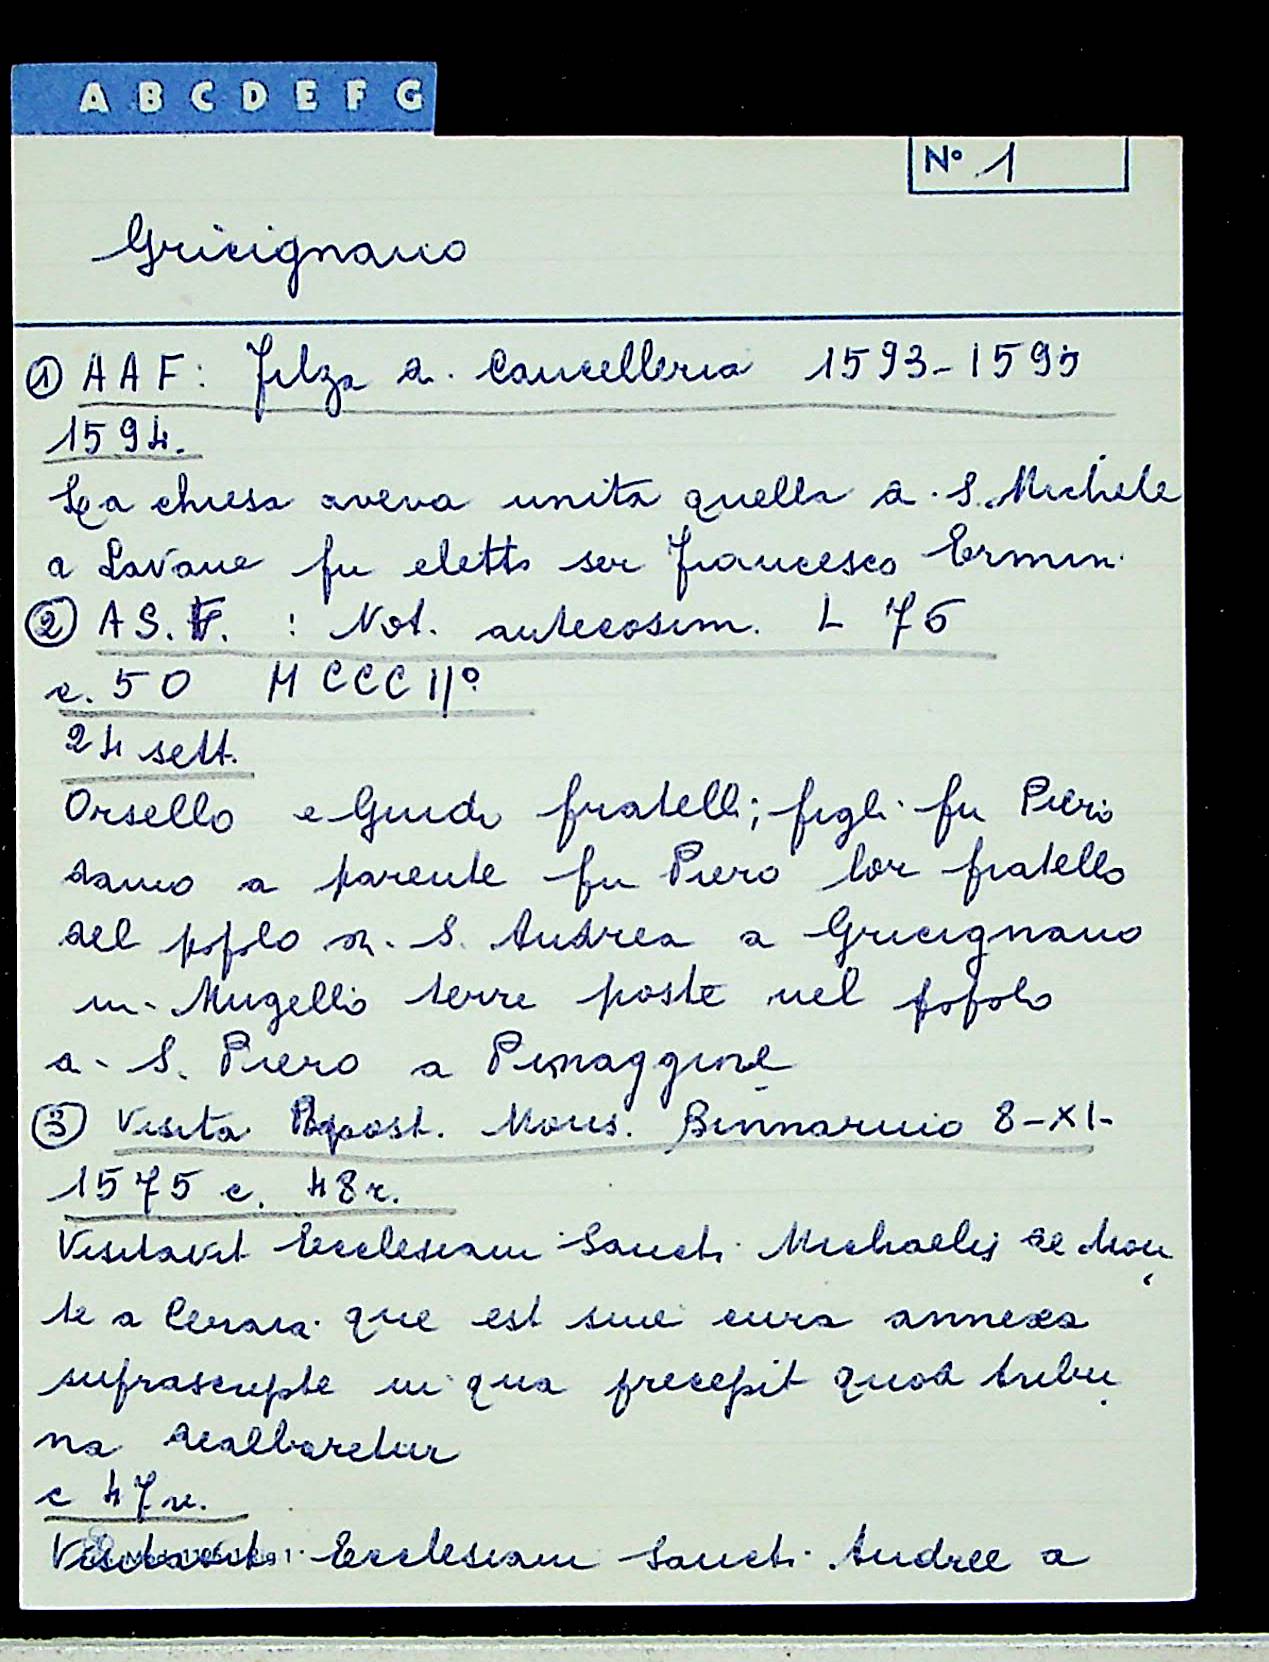 A B C D E F G
N° 1
Gricignano
① AAF: Filza d. Cancelleria 1593-1595
1594.
La chiesa aveva unita quella d. S. Michele
a Lavane fu eletto ser Francesco Ermin.
② A S. F. : Not. antecosim. L 76
c. 50 MCCCII°
24 sett.
Orsello e Guido fratelli; figli fu Piero
danno a parente fu Piero lor fratello
del popolo di S. Andrea a Gricignano
in Mugello terre poste nel popolo
d. S. Piero a
③ Visita Apost. Mons. Binnarino 8-XI-
1575 c. 48r.
Visitavit Ecclesiam Sancti Michaelis de Mon
te a que est sine cura annexa
suprascripte in qua precepit quod tribu
na dealbaretur
c 47v.
Visitavit Ecclesiam Sancti Andree a